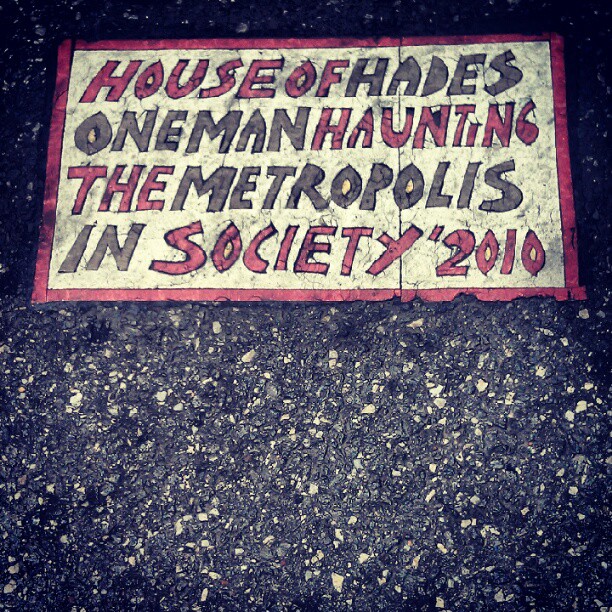 HOUSE OF HADES
ONE MAN HAUNTING
THE METROPOLIS
IN SOCIETY '2010